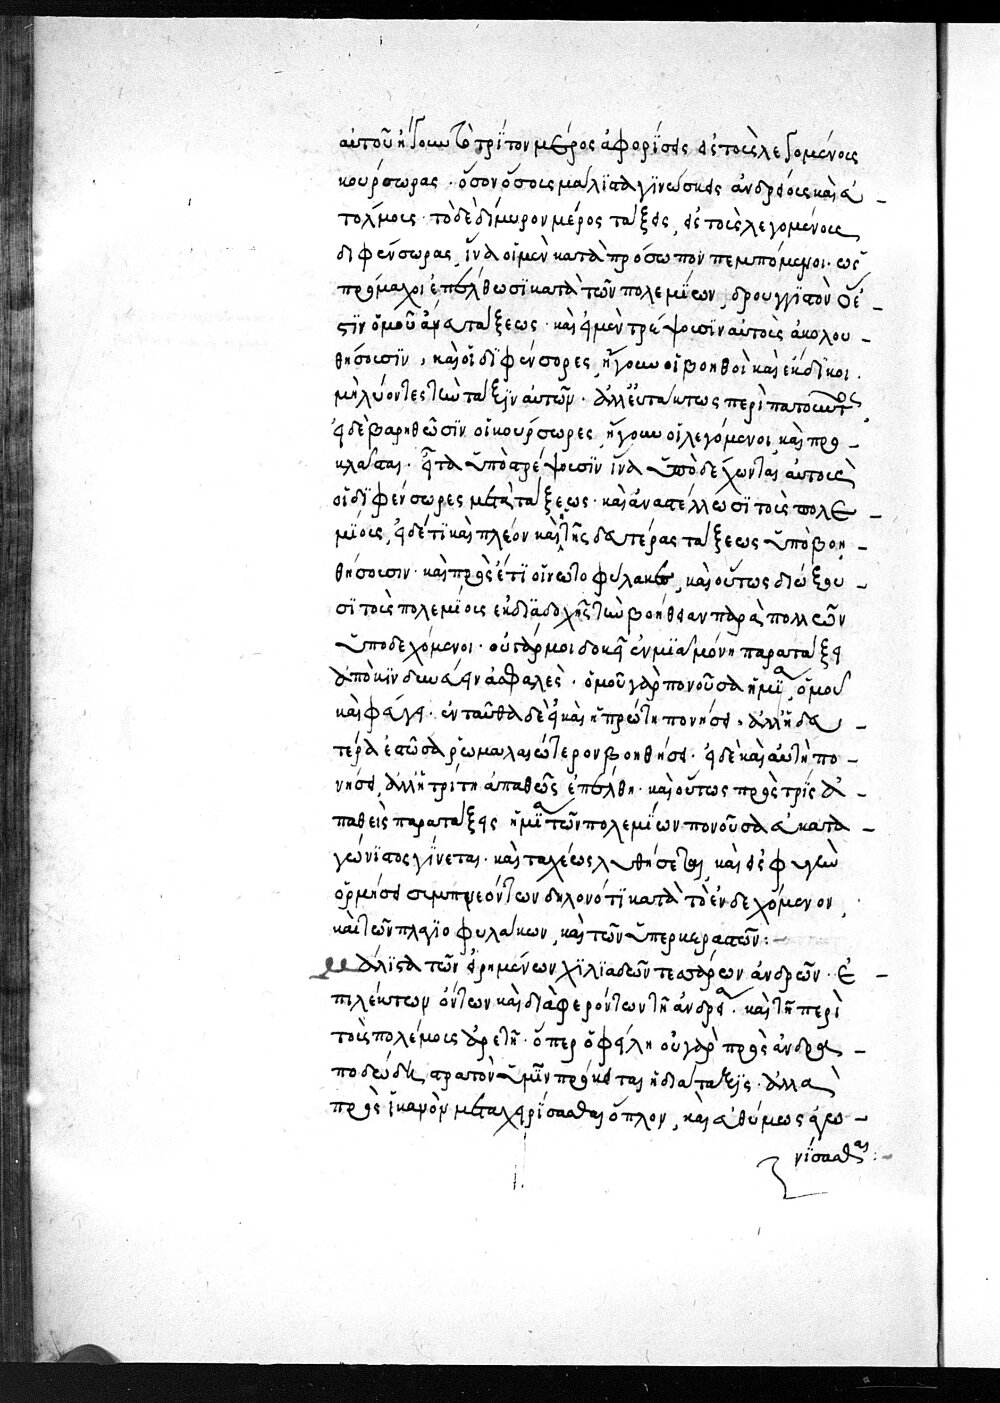 αὐτοῦ ἤγουν τὸ τρίτον μέρος ἀφορίσεις εἰς τοὺς λεγομένους
κούρσωρας · ὅσον ὅσους μάλιστα γινώσκεις ἀνδρείους καὶ εὐ-
τόλμους · τὸ δὲ δίμοιρον μέρος τάξεις, εἰς τοὺς λεγομένους
διφένσωρας, ἵνα οἱ μὲν κατὰ πρόσωπον πεμπόμενοι · ὡς
πρόμαχοι ἐπέλθωσι κατὰ τῶν πολεμίων, δρουγγιστὸν
ὁμοῦ ἄνευ τάξεως · καὶ εἰ μὲν τρέψουσιν αὐτοὺς ἀκολου-
θήσουσιν, καὶ οἱ διφένσορες, ἤγουν οἱ βοηθοὶ καὶ ἔκδικοι ·
μὴ λύοντες τὴν τάξιν αὐτῶν · ἀλλ' εὐτάκτως περιπατοῦντες,
εἰ δὲ βαρηθῶσιν οἱ κούρσωρες, ἤγουν οἱ λεγόμενοι καὶ προ-
κλάσται · εἶτα ὑποστρέψουσιν ἵνα ὑποδέχωνται αὐτοὺς
οἱ διφένσωρες μετὰ τάξεως · καὶ ἀναστέλλωσι τοὺς πολε-
μίους, εἰ δέ τι καὶ πλέον καὶ τῆς δευτέρας τάξεως ὑποβοη-
θήσουσιν · καὶ πρὸς ἔτι οἱ νωτοφύλακες, καὶ οὕτως διώξου-
σι τοὺς πολεμίους ἐκ διαδοχῆς τὴν βοήθειαν παρὰ πολλῶν
ὑποδεχόμενοι · οὐ γάρ μοι δοκεῖ ἐν μιᾷ μόνῃ παρατάξει
ἀποκινδυνεύειν ἀσφαλὲς · ὁμοῦ γὰρ πονοῦσα ἡ μία, ὁμοῦ
καὶ φεύγει · ἐνταῦθα δὲ εἰ καὶ ἡ πρώτη πονήσει, ἀλλ' ἡ δευ-
τέρα ἑστῶσα ῥωμαλαιώτερον βοηθήσει · εἰ δὲ καὶ αὐτὴ πο-
νήσει, ἀλλ' ἡ τρίτη ἀπαθῶς ἐπέλθη · καὶ οὕτως πρὸς τρεῖς εὐ-
παθεῖς παρατάξεις ἡ μία τῶν πολεμίων πονοῦσα εὐκατα-
γώνιστος γίνεται · καὶ ταχέως λυθήσεται, καὶ εἰς φυγὴν
ὁρμήσει συμπνεόντων δηλονότι κατὰ τὸ ἐνδεχόμενον,
καὶ τῶν πλαγιοφυλάκων, καὶ τῶν ὑπερκεραστῶν :-
Μάλιστα τῶν εἰρημένων χιλιάδων τεσσάρων ἀνδρῶν · ἐ-
πιλέκτων ὄντων καὶ διαφερόντων τῇ ἀνδρείᾳ · καὶ τῇ περὶ
τοὺς πολέμους ἀρετῇ · ὅπερ ὀφείλη οὐ γὰρ πρὸς ἀνδρα-
ποδώδη στρατὸν ὑμῖν πρόκειται ἡ διάταξις · ἀλλὰ
πρὸς ἱκανὸν μεταχειρίσασθαι ὅπλον, καὶ εὐθύμως ἀγω-
νίσασθαι :-